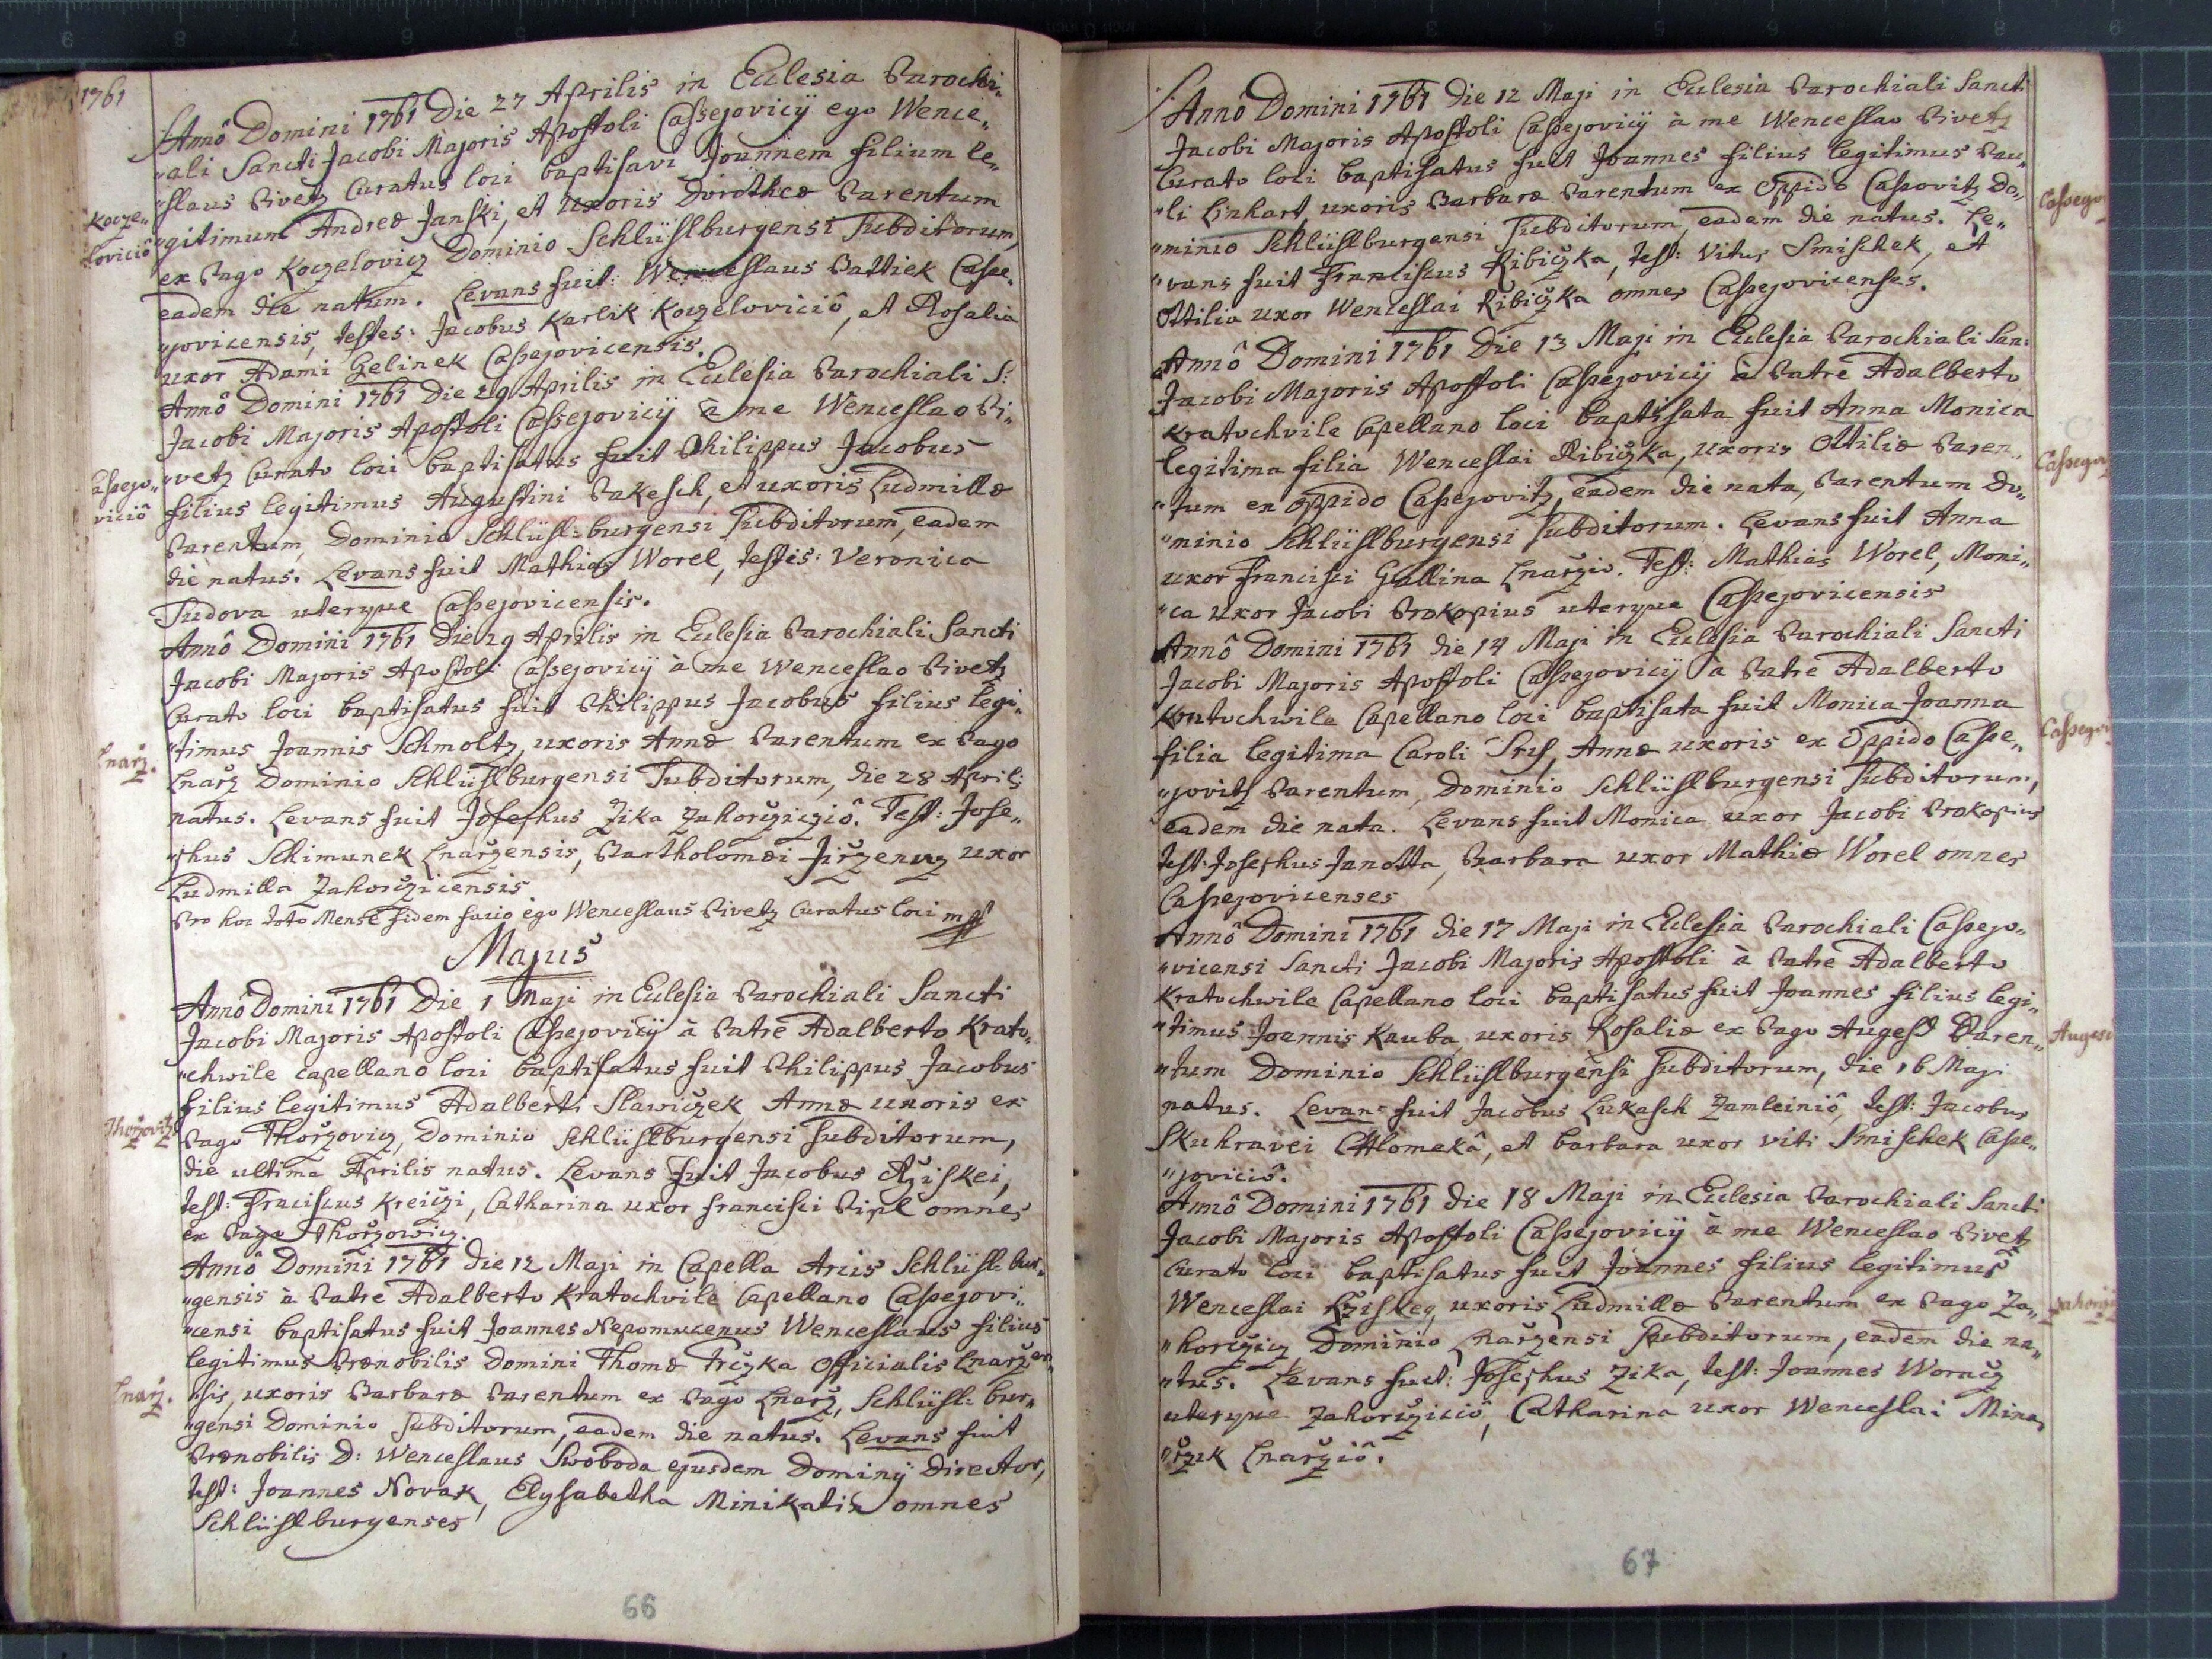 1761
Annô Domini 1761 Die 27 Aprilis in Eclesia Parochi„
„ali Sancti Jacobi Majoris Apostoli Cassejovicÿ ego Wence„
„slaus Pivetz Curatus loci baptisavi Joannem filium le„
Koczelovicio
„gitimum Andreæ Janski, et Uxoris Dorotheæ Parentum
ex Pago Koczelovicz Dominio Schlüslburgensi Subditorum,
eadem die natum. Levans fuit: Wenceslaus Battiek Casse„
„jovicensis, testes: Jacobus Karlik Koczeloviciô, et Rosalia
uxor Adami Gelinek Cassejovicensis.
Annô Domini 1761 Die 29 Aprilis in Eclesia Parochiali S:
Jacobi Majoris Apostoli Cassejovicÿ à me Wenceslao Pi„
„vetz Curato loci baptisatus fuit Philippus Jacobus
Cassejo„
viciô
filius legitimus Augustini Pakesch, et uxoris Ludmillæ
Parentum, Dominio Schlüsl:burgensi Subditorum, eadem
die natus. Levans fuit Mathias Worel, testes: Veronica
Tudova uterque Cassejovicensis.
Annô Domini 1761 Die 29 Aprilis in Eclesia Parochiali Sancti
Jacobi Majoris Apostoli Cassejovicÿ à me Wenceslao Pivetz
Curato loci baptisatus fuit Philippus Jacobus filius legi„
„timus Joannis Schmoltz, uxoris Annæ Parentum ex Pago
Lnarz.
Lnarz Dominio Schlüslburgensi Subditorum, die 28 Aprilis
natus. Levans fuit Josephus Zika Zahorcziczio. Test: Jose„
„phus Schimunek Lnarzensis, Bartholomæi Jirzenez uxor
Ludmilla Zahorczicensis
Pro hoc toto Mense fidem facio ego Wenceslaus Pivetz Curatus loci mp
Majus
Annô Domini 1761 Die 1 Maji in Eclesia Parochiali Sancti
Jacobi Majoris Apostoli Cassejovicÿ à Patre Adalberto Krato„
„chwile Capellano loci baptisatus fuit Philippus Jacobus
filius legitimus Adalberti Slawiczek Annæ uxoris ex
Thorzovitz
Pago Thorzovicz, Dominio Schlüslburgensi Subditorum,
die ultima Aprilis natus. Levans fuit Jacobus Rziskei,
test: Franciscus Kreiczi, Catharina uxor Francisci Pipl omnes
ex Pago Thorzowicz.
Annô Domini 1761 die 12 Maji in Capella Arcis Schlüsl:bur„
„gensis à Patre Adalberto Kratochvile Capellano Cassejovi„
„censi baptisatus fuit Joannes Nepomucenus Wenceslaus filius
legitimus Prænobilis Domini Thomæ Treczka Officialis Lnarzen„
Lnarz.
sis, uxoris Barbaræ Parentum ex Pago Lnarz, Schlüsl:bur„
„gensi Dominio Subditorum, eadem die natus. Levans fuit
Prænobilis D: Wenceslaus Swoboda ejusdem Dominÿ Director,
test: Joannes Novak, Elysabetha Minikatin omnes
Schlüslburgenses
66
Annô Domini 1761 die 12 Maji in Eclesia Parochiali Sancti
Jacobi Majoris Apostoli Cassejovicÿ à me Wenceslao Pivetz
Curato loci baptisatus fuit Joannes filius legitimus Pau„
„li Linhart, uxoris Barbaræ Parentum ex Oppido Cassovitz Do„
Cassejov
„minio Schlüslburgensi Subditorum, eadem die natus. Le„
„vans fuit Franciscus Ribiczka, test: Vitus Smischek, et
Ottilia uxor Wenceslai Ribiczka omnes Cassejovicenses.
Annô Domini 1761 Die 13 Maji in Eclesia Parochiali San:
Jacobi Majoris Apostoli Cassejovicÿ à Patre Adalberto
Kratochvile Capellano loci baptisata fuit Anna Monica
legitima filia Wenceslai Ribiczka, uxoris Ottiliæ Paren„
Cassejov
„tum ex oppido Cassejovitz, eadem die nata, Parentum Do„
„minio Schlüslburgensi Subditorum. Levans fuit Anna
uxor Francisci Gallina Lnarzio. Test: Mathias Worel, Moni„
„ca uxor Jacobi Prokopius uterque Cassejovicensis
Annô Domini 1761 die 14 Maji in Eclesia Parochiali Sancti
Jacobi Majoris Apostoli Cassejovicÿ à Patre Adalberto
Kratochwile Capellano loci baptisata fuit Monica Joanna
Cassejov
filia legitima Caroli Srs, Annæ uxoris ex Oppido Casse„
„jovitz Parentum, Dominio Schlüslburgensi Subditorum,
eadem die nata. Levans fuit Monica uxor Jacobi Prokopius
test: Josephus Janotta, Barbara uxor Mathiæ Worel omnes
Cassejovicenses
Annô Domini 1761 die 17 Maji in Eclesia Parochiali Cassejo„
„vicensi Sancti Jacobi Majoris Apostoli à Patre Adalberto
Kratochwile Capellano loci baptisatus fuit Joannes filius legi„
„timus Joannis Kauba, uxoris Rosaliæ ex Pago Augesd Paren„
Augesd
„tum Dominio Schlüslburgensi Subditorum, die 16 Maji
natus. Levans fuit Jacobus Lukasch Zamleiniô, test: Jacobus
Skuhravei Chlomekâ, et Barbara uxor Viti Smischek Casse„
„joviciô.
Annô Domini 1761 die 18 Maji in Eclesia Parochiali Sancti
Jacobi Majoris Apostoli Cassejovicÿ à me Wenceslao Pivetz
Curato loci baptisatus fuit Joannes filius legitimus
Wenceslai Lziskeg, uxoris Ludmillæ Parentum ex Pago Za„
„horczicz Dominio Lnarzensi Subditorum, eadem die na„
„tus. Levans fuit: Josephus Zika, test: Joannes Wornicz
uterque Zahorcziciô, Catharina uxor Wenceslai Mina„
„rzik Lnarziô.
67